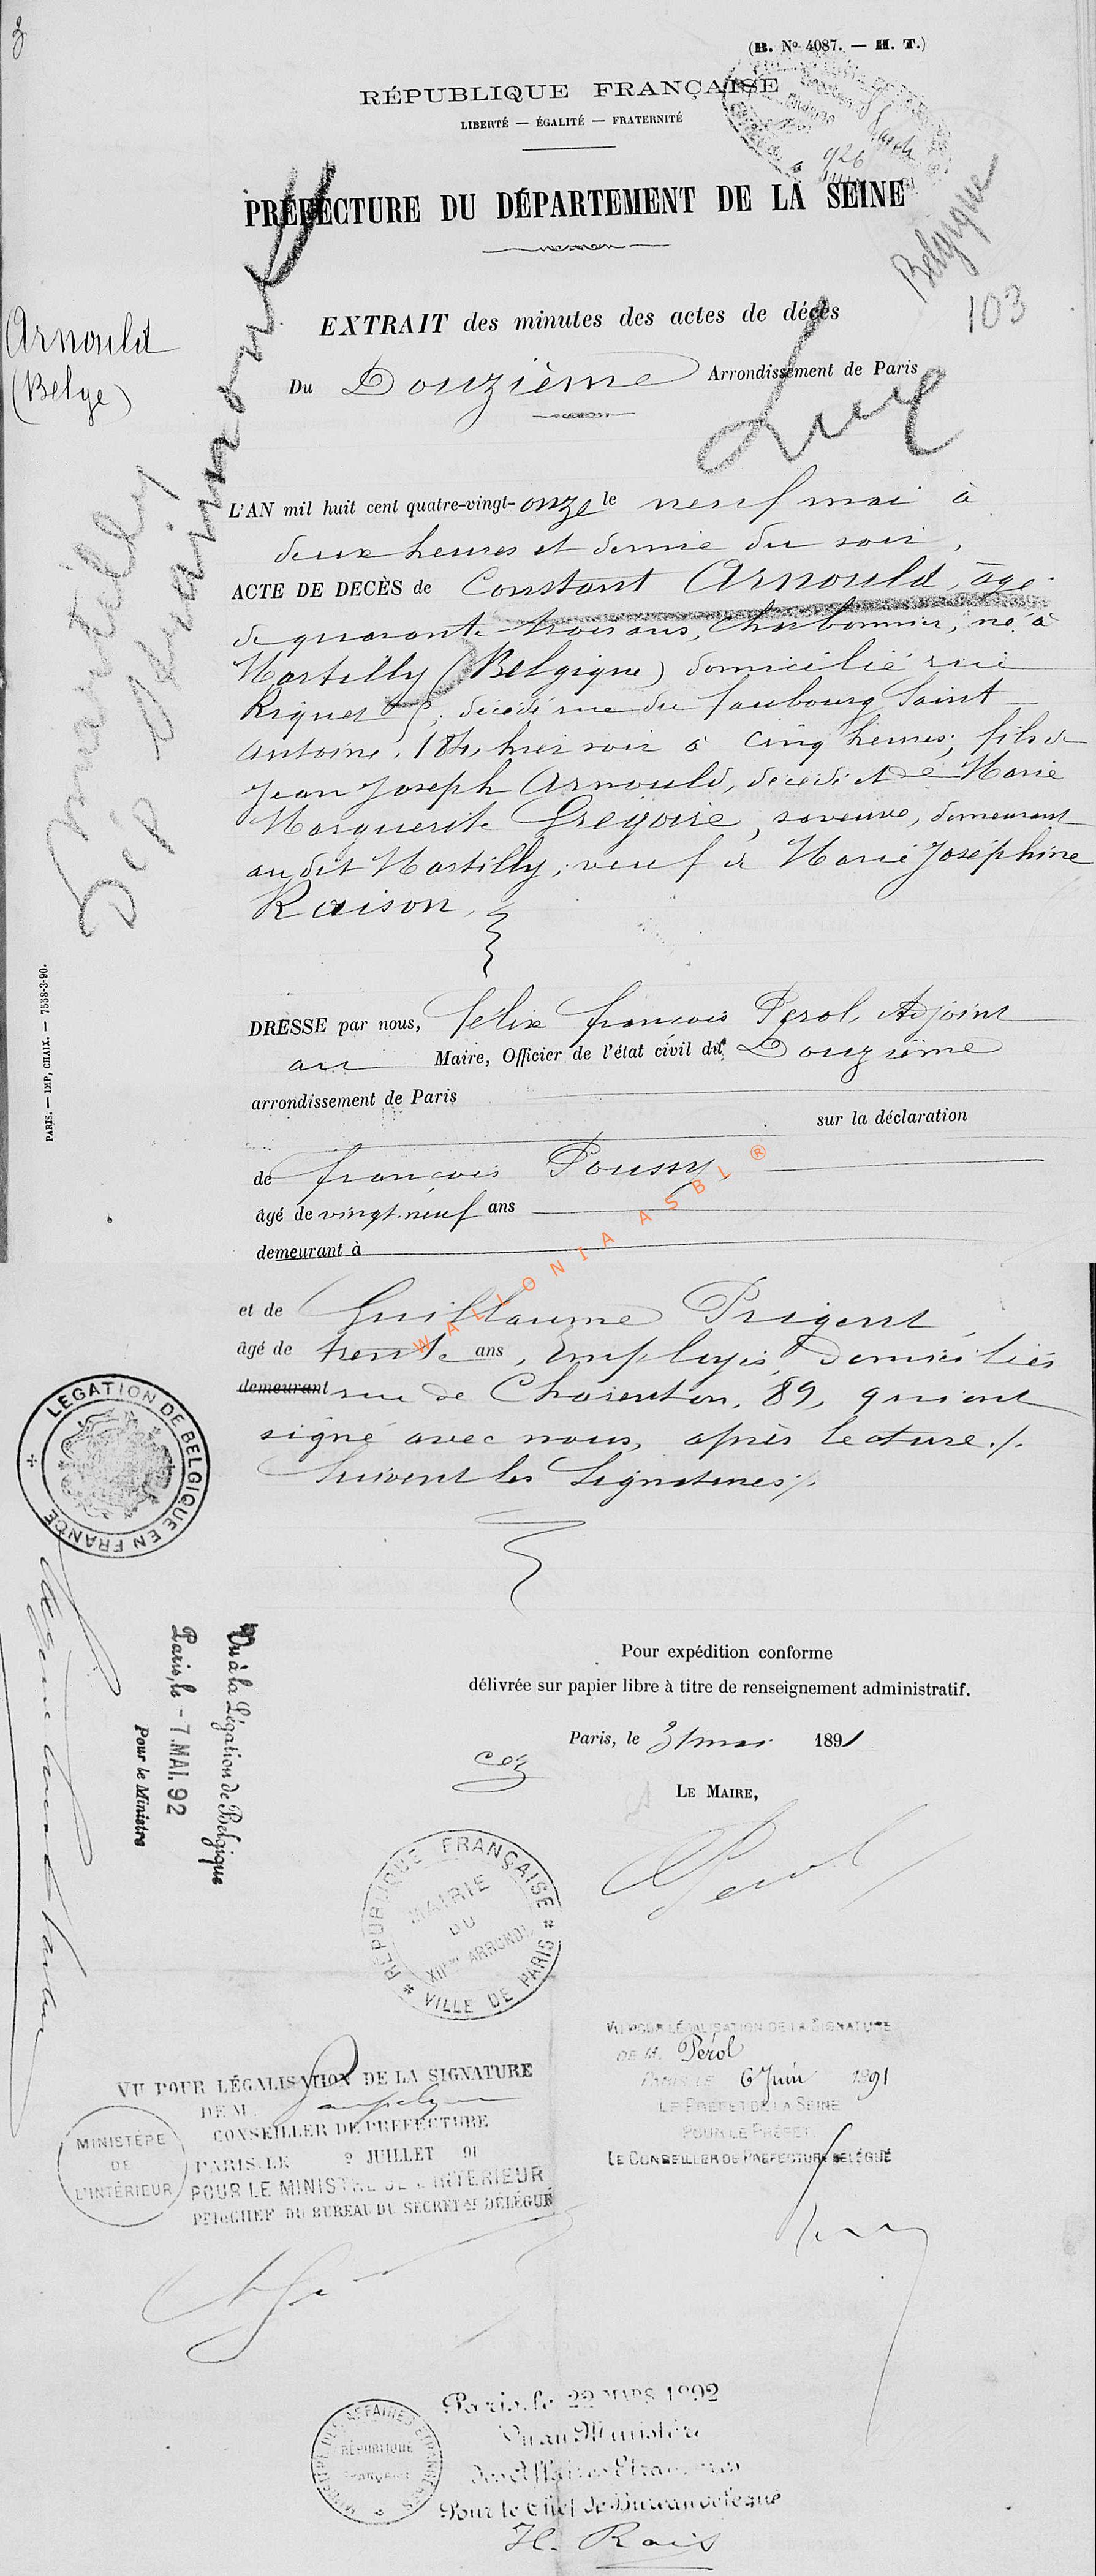 (B. No 4087. — H. T.)
RÉPUBLIQUE FRANÇAISE
LIBERTÉ — ÉGALITÉ — FRATERNITÉ
926
PRÉFECTURE DU DÉPARTEMENT DE LA SEINE
Belgique
103
Arnould
(Belge)
EXTRAIT des minutes des actes de décès
Du Douzième Arrondissement de Paris
L'AN mil huit cent quatre-vingt-onze le neuf mai à
deux heures et demie du soir,
ACTE DE DÉCÈS de Constant Arnould, âgé
de quarante-trois ans, Charbonnier, né à
Martilly (Belgique) domicilié rue
Riquet décédé rue du faubourg Saint
Antoine, 184, hier soir à cinq heures; fils de
Jean Joseph Arnould, décédé et de Marie
Marguerite Grégoire, sa veuve, demeurant
au dit Martilly; veuf de Marie Joséphine
Raison,
PARIS. — IMP, CHAIX. — 7538-3-90.
DRESSÉ par nous, Félix François Pérol, Adjoint
au Maire, Officier de l'état civil du Douzième
arrondissement de Paris
sur la déclaration
de François Poussy
âgé de vingt-neuf ans
demeurant à
WALLONIA ASBL ®
et de Guillaume Prigent,
âgé de trente ans, Employés, domiciliés
demeurant rue de Charenton, 89, qui ont
signé avec nous, après lecture ./.
Suivent les Signatures ./.
LÉGATION DE BELGIQUE EN FRANCE
Vu à la Légation de Belgique
Paris, le - 7. MAI. 92
Pour le Ministre
Pour expédition conforme
délivrée sur papier libre à titre de renseignement administratif.
Paris, le 31 mai 1891
LE MAIRE,
Pérol
RÉPUBLIQUE FRANÇAISE
MAIRIE
DU
XIIme ARRONDt
VILLE DE PARIS
VU POUR LÉGALISATION DE LA SIGNATURE
DE M. Pérol
PARIS LE 6 Juin 1891
LE PRÉFET DE LA SEINE
POUR LE PRÉFET,
LE CONSEILLER DE PRÉFECTURE DÉLÉGUÉ
VU POUR LÉGALISATION DE LA SIGNATURE
DE M.
CONSEILLER DE PRÉFECTURE
PARIS, LE 2 JUILLET 91
POUR LE MINISTRE DE L'INTÉRIEUR
Pr LE CHEF DU BUREAU DU SECRÉTAt DÉLÉGUÉ
MINISTÈRE
DE
L'INTÉRIEUR
Paris, le 22 MARS 1892
Vu au Ministère
des Affaires Etrangères
Pour le Chef de Bureau délégué
MINISTÈRE DES AFFAIRES ETRANGÈRES
RÉPUBLIQUE
FRANÇAISE